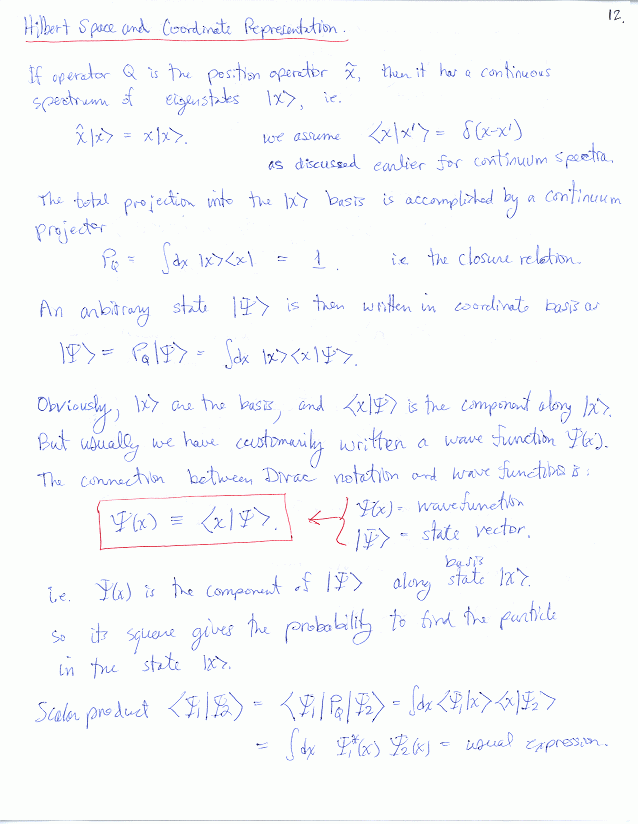 12.
Hilbert Space and Coordinate Representation.
If operator Q is the position operator x̂, then it has a continuous
spectrum of eigenstates |x⟩, i.e.
x̂|x⟩ = x|x⟩. we assume ⟨x|x'⟩ = δ(x-x')
as discussed earlier for continuum spectra.
The total projection into the |x⟩ basis is accomplished by a continuum
projector
P_Q = ∫dx |x⟩⟨x| = 1. i.e. the closure relation.
An arbitrary state |Ψ⟩ is then written in coordinate basis as
|Ψ⟩ = P_Q|Ψ⟩ = ∫dx |x⟩⟨x|Ψ⟩.
Obviously, |x⟩ are the basis, and ⟨x|Ψ⟩ is the component along |x⟩.
But usually we have customarily written a wave function Ψ(x).
The connection between Dirac notation and wave functions is:
Ψ(x) ≡ ⟨x|Ψ⟩. ← { Ψ(x) = wavefunction
|Ψ⟩ = state vector.
i.e. Ψ(x) is the component of |Ψ⟩ along basis state |x⟩.
So its square gives the probability to find the particle
in the state |x⟩.
Scalar product ⟨Ψ₁|Ψ₂⟩ = ⟨Ψ₁|P_Q|Ψ₂⟩ = ∫dx ⟨Ψ₁|x⟩⟨x|Ψ₂⟩
= ∫dx Ψ₁*(x) Ψ₂(x) = usual expression.